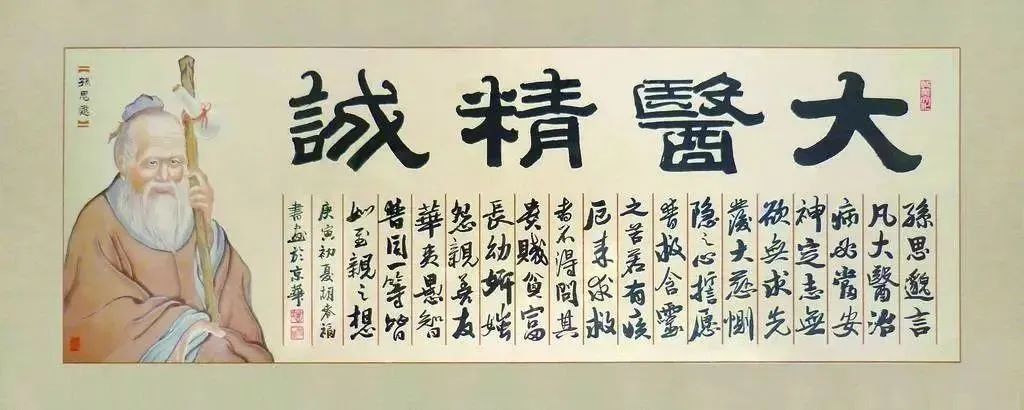 大醫精誠
孫思邈言
凡大醫治
病必當安
神定志無
欲無求先
發大慈惻
隱之心誓願
普救含靈
之苦若有疾
厄来求救
者不得問其
貴賤貧富
長幼妍媸
怨親善友
華夷愚智
普同一等皆
如至親之想
庚寅初夏胡福
書画於京華
【孫思邈】